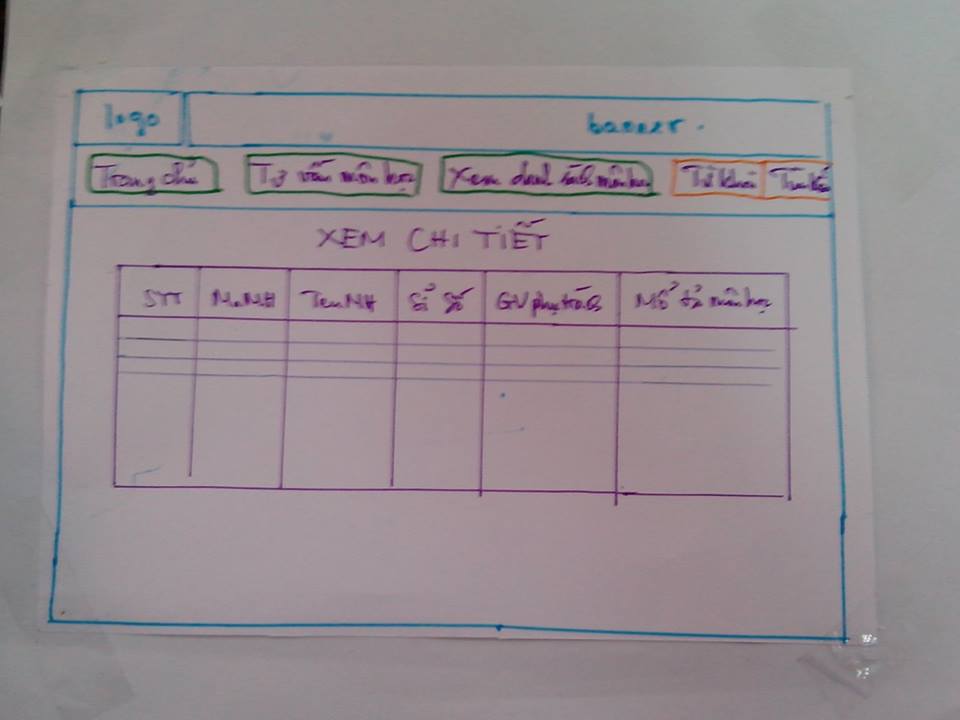 logo banner.
Trang chủ Tư vấn môn học Xem danh sách môn học Từ khóa Tìm kế
XEM CHI TIẾT
STT MaMH TenMH Sỉ Số GV phụ trách Mô tả môn học